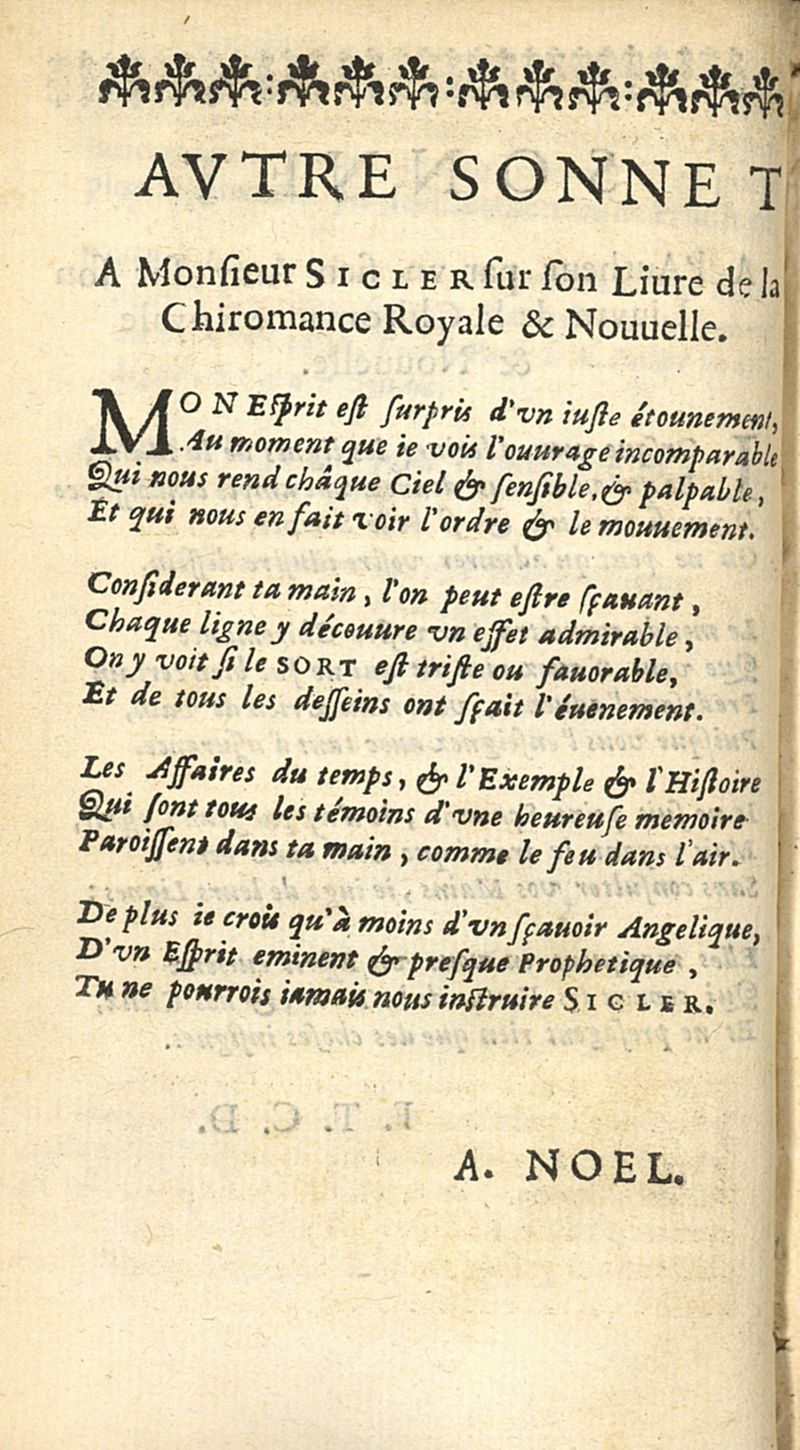 AVTRE SONNET
A Monſieur SICLER ſur ſon Liure de la
Chiromance Royale & Nouuelle.
MON Eſprit eſt ſurpris d'vn iuſte étounement,
Au moment que ie vois l'ouurage incomparable
Qui nous rend châque Ciel & ſenſible, & palpable,
Et qui nous en fait voir l'ordre & le mouuement.
Conſiderant ta main, l'on peut eſtre ſçauant,
Chaque ligne y découure vn effet admirable,
On y voit ſi le SORT eſt triſte ou fauorable,
Et de tous les deſſeins ont ſçait l'éuenement.
Les Affaires du temps, & l'Exemple & l'Hiſtoire
Qui ſont tous les témoins d'vne heureuſe memoire
Paroiſſent dans ta main, comme le feu dans l'air.
De plus ie crois qu'à moins d'vn ſçauoir Angelique,
D'vn Eſprit eminent & preſque Prophetique,
Tu ne pourrois iamais nous inſtruire SICLER.
A. NOEL.